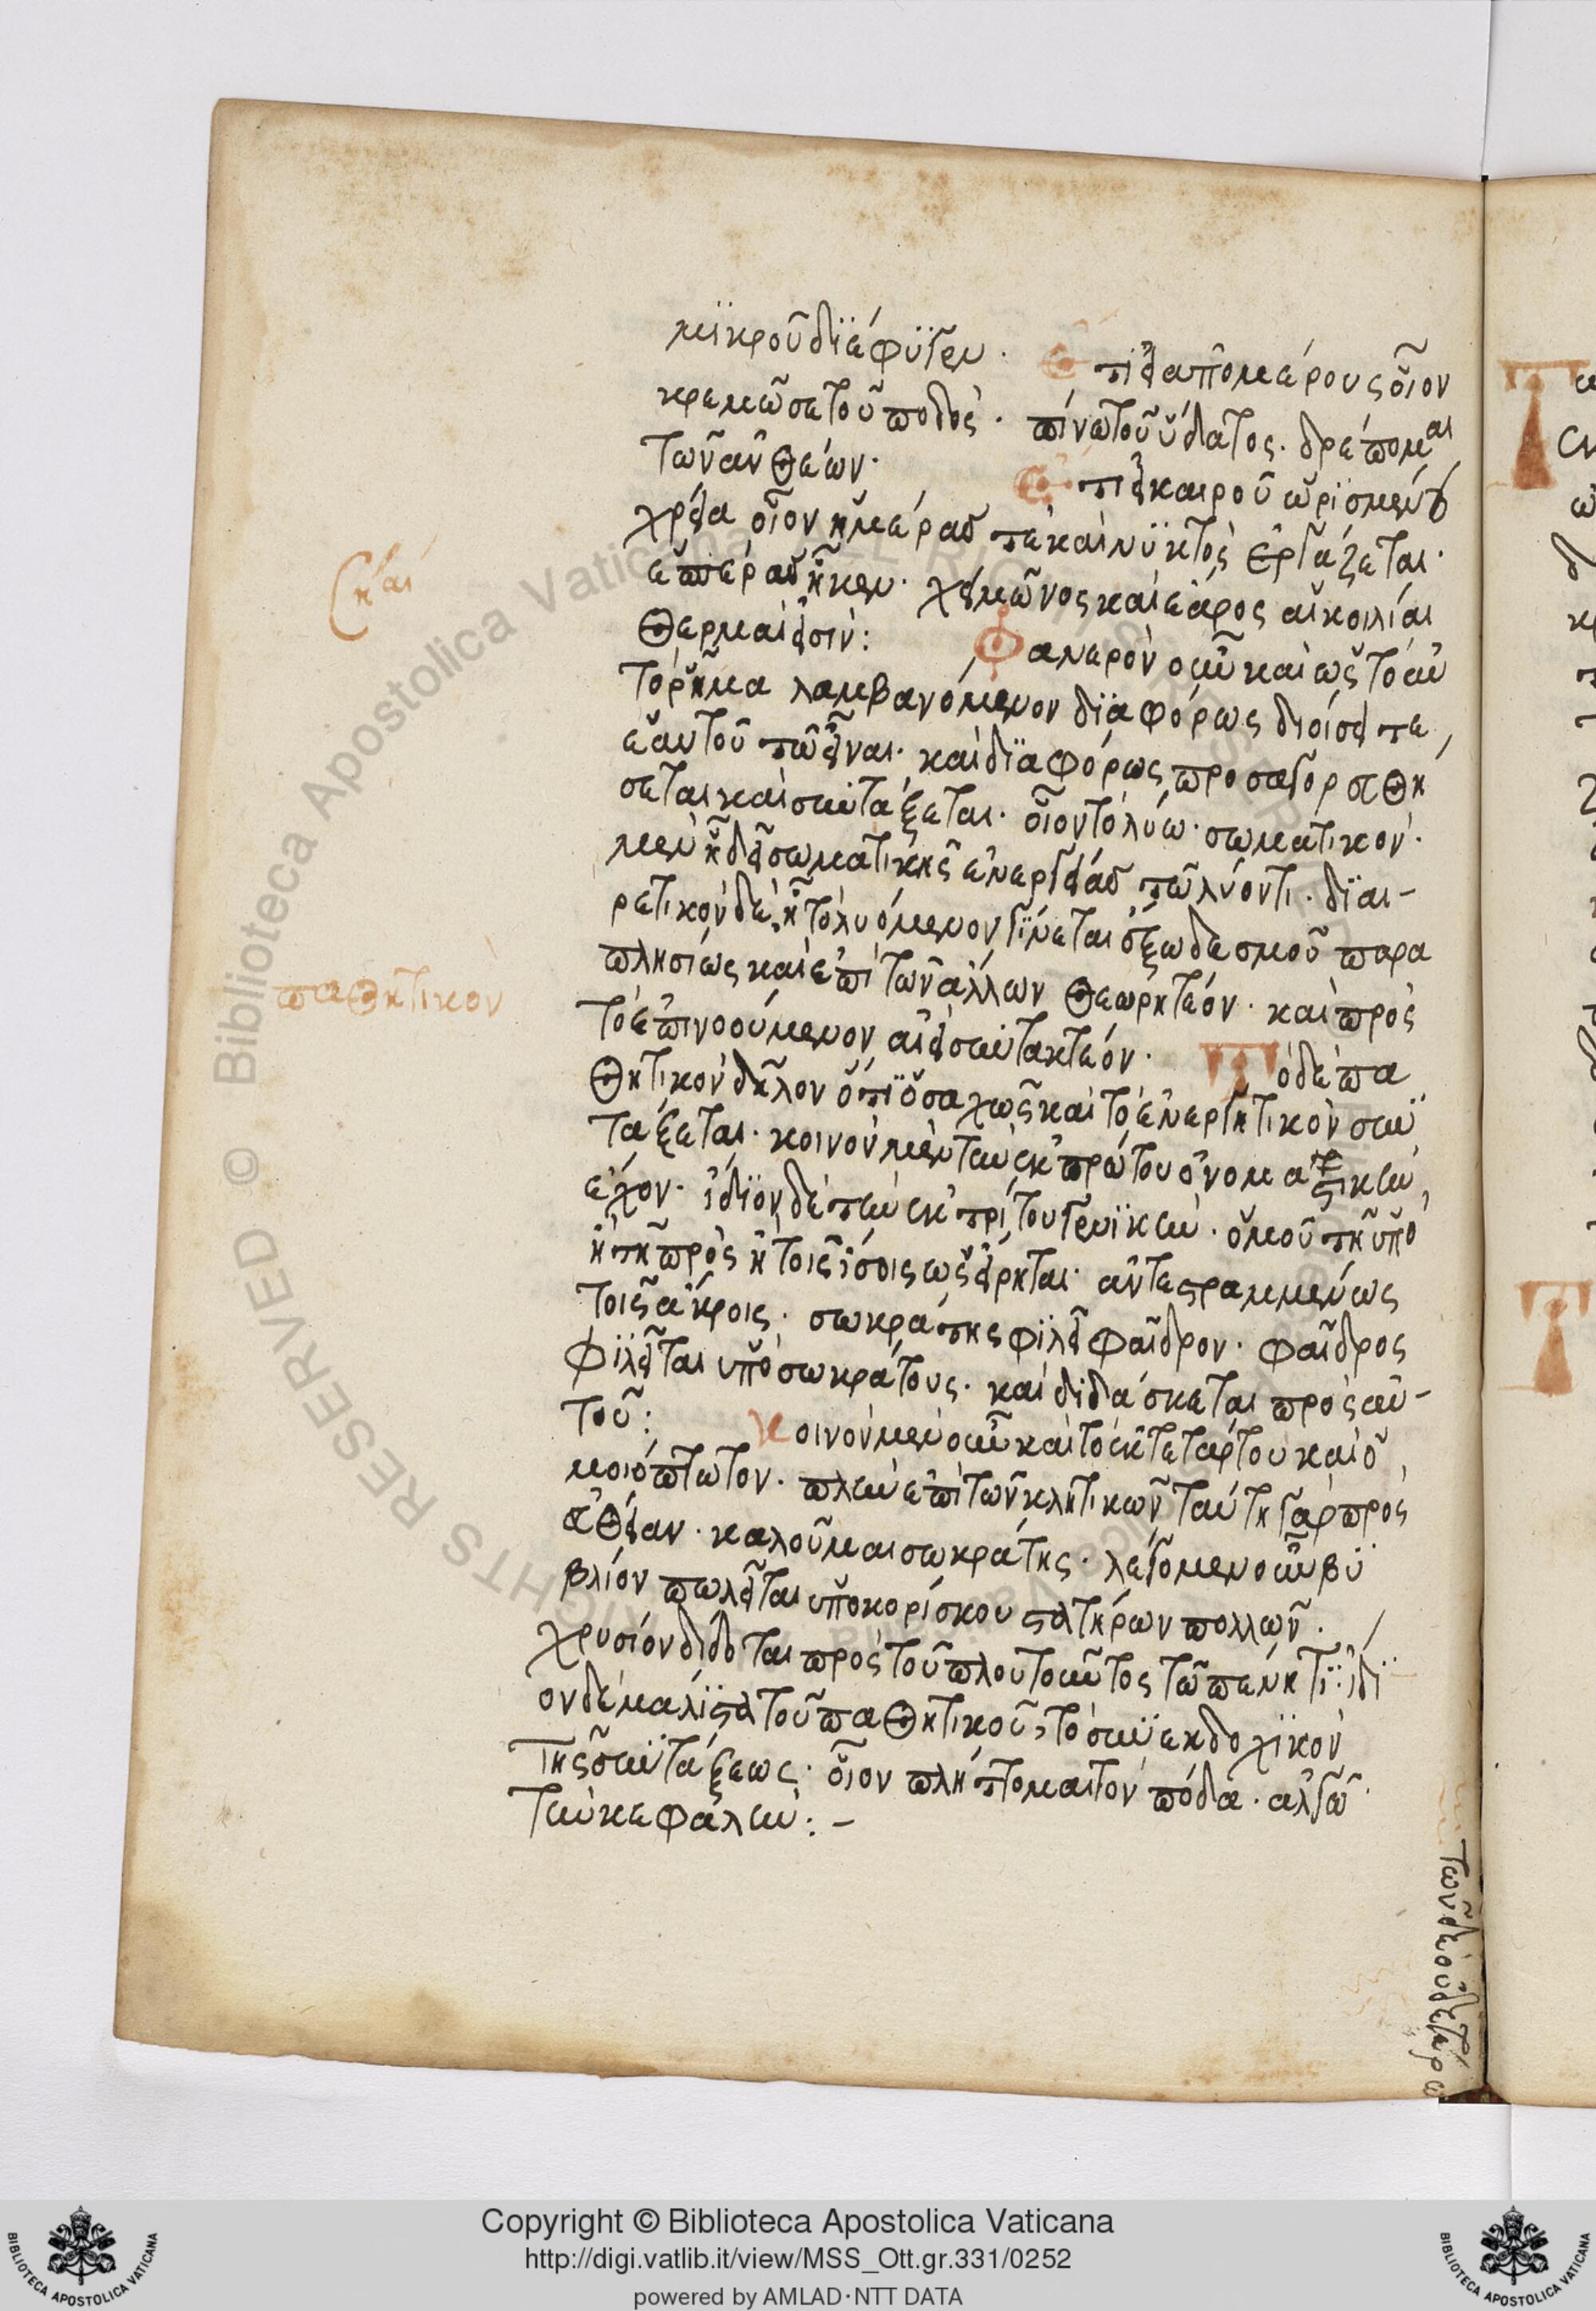 μϊκροῦ δϊέφϋγεν. Ἐπὶ δὲ ἀπὸ μέρους οἷον
κρεμῶσε τοῦ ποδός. πίνω τοῦ ὕδατος. δρέπομαι
τῶν ἀνθέων. Ἐπὶ δὲ καιροῦ ὡρϊσμένου
χρεία οἷον ἡμέρας τὲ καὶ νϋκτὸς ἐργάζεται.
ἑσπέρας ἧκεν. χειμῶνος καὶ ἔαρος αἱ κοιλίαι
θερμαὶ εἰσίν: Φανερὸν οὖν καὶ ὡς τὸ ἓν
τὸ ῥῆμα λαμβανόμενον δϊαφόρως διοίσει τε
ἑαυτοῦ τῷ εἶναι. καὶ δϊαφόρως προσαγορευθή
σεται καὶ συντάξεται. οἷον τὸ λύω. σωματικὸν.
μὲν ᾗ δεῖ σωματικῆς ἐνεργείας τῷ λύοντι. δϊαι-
ρετικὸν δὲ, ᾗ τὸ λυόμενον γίνεται ἔξω δεσμοῦ παρα
πλησίως καὶ ἐπὶ τῶν ἄλλων θεωρητέον. καὶ πρὸς
τὸ ἐπινοούμενον ἀεὶ συντακτέον. Τὸ δὲ πα
θητικὸν δῆλον ὅτϊ ὁσαχῶς καὶ τὸ ἐνεργητικὸν συν
τάξεται. κοινὸν μὲν τὴν ἐκ πρώτου ὀνοματικὴν
ἔχον. ἴδϊον δὲ τὴν ἐκ τρίτου γενϊκήν. ὁμοῦ τῇ ὑπὸ
ἢ τῇ πρὸς ἢ τοῖς ἴσοις ὡς εἴρηται. ἀντεστραμμένως
τοῖς ἄκροις. σωκράτης φϊλεῖ φαῖδρον. φαῖδρος
φϊλεῖται ὑπὸ σωκράτους. καὶ διδάσκεται πρὸς αὐ-
τοῦ: κοινὸν μὲν οὖν καὶ τὸ ἐκ τετάρτου καὶ ὁ
μοιόπτωτον. πλὴν ἐπὶ τῶν κλητικῶν ταύτῃ γὰρ πρὸς
εὐθεῖαν. καλοῦμαι σωκράτης. λέγομεν οὖν βϋ
βλίον πωλεῖται ὑπὸ κορίσκου στατήρων πολλῶν.
χρυσίον δίδοται πρὸς τοῦ πλουτοῦντος τῷ πένητϊ: ἴδϊ
ον δὲ μάλϊστα τοῦ παθητικοῦ, τὸ συνεκδοχϊκὸν
τῆς συντάξεως. οἷον πλήττομαι τὸν πόδα. ἀλγῶ
τὴν κεφαλήν:-
παθητικὸν
Copyright © Biblioteca Apostolica Vaticana
http://digi.vatlib.it/view/MSS_Ott.gr.331/0252
powered by AMLAD·NTT DATA
BIBLIOTECA APOSTOLICA VATICANA
BIBLIOTECA APOSTOLICA VATICANA